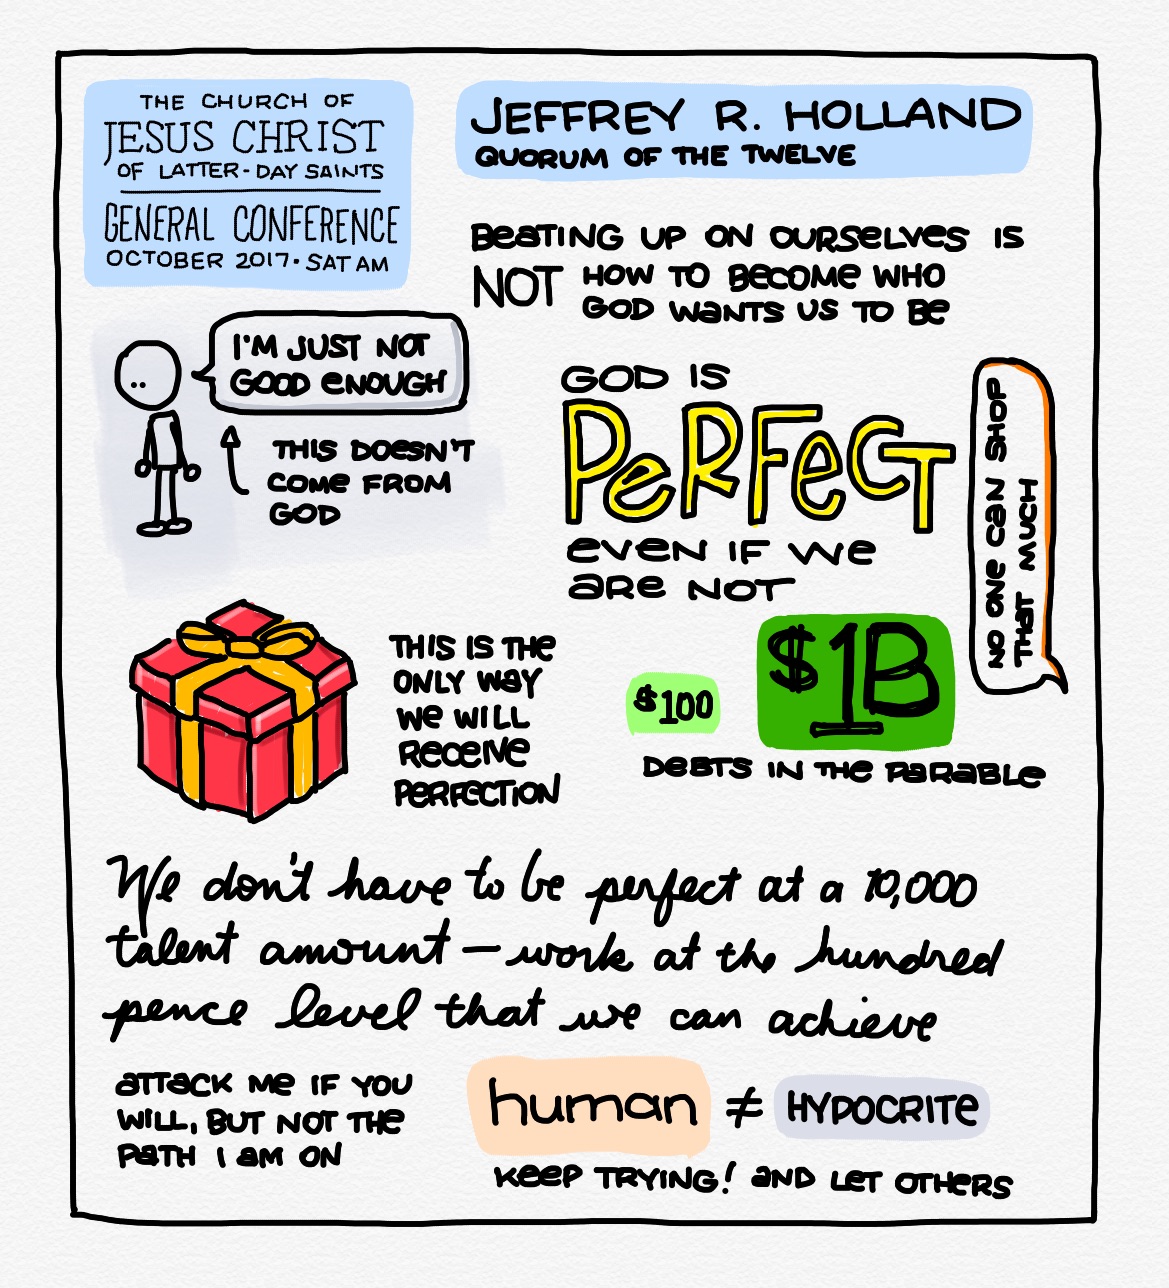 THE CHURCH OF
JESUS CHRIST
OF LATTER-DAY SAINTS
GENERAL CONFERENCE
OCTOBER 2017 • SAT AM
JEFFREY R. HOLLAND
QUORUM OF THE TWELVE
BEATING UP ON OURSELVES IS
NOT HOW TO BECOME WHO
GOD WANTS US TO BE
I'M JUST NOT
GOOD ENOUGH
THIS DOESN'T
COME FROM
GOD
GOD IS
PERFECT
EVEN IF WE
ARE NOT
NO ONE CAN SHOP
THAT MUCH
THIS IS THE
ONLY WAY
WE WILL
RECEIVE
PERFECTION
$100
$1B
DEBTS IN THE PARABLE
We don't have to be perfect at a 10,000
talent amount — work at the hundred
pence level that we can achieve
ATTACK ME IF YOU
WILL, BUT NOT THE
PATH I AM ON
human ≠ HYPOCRITE
KEEP TRYING! AND LET OTHERS